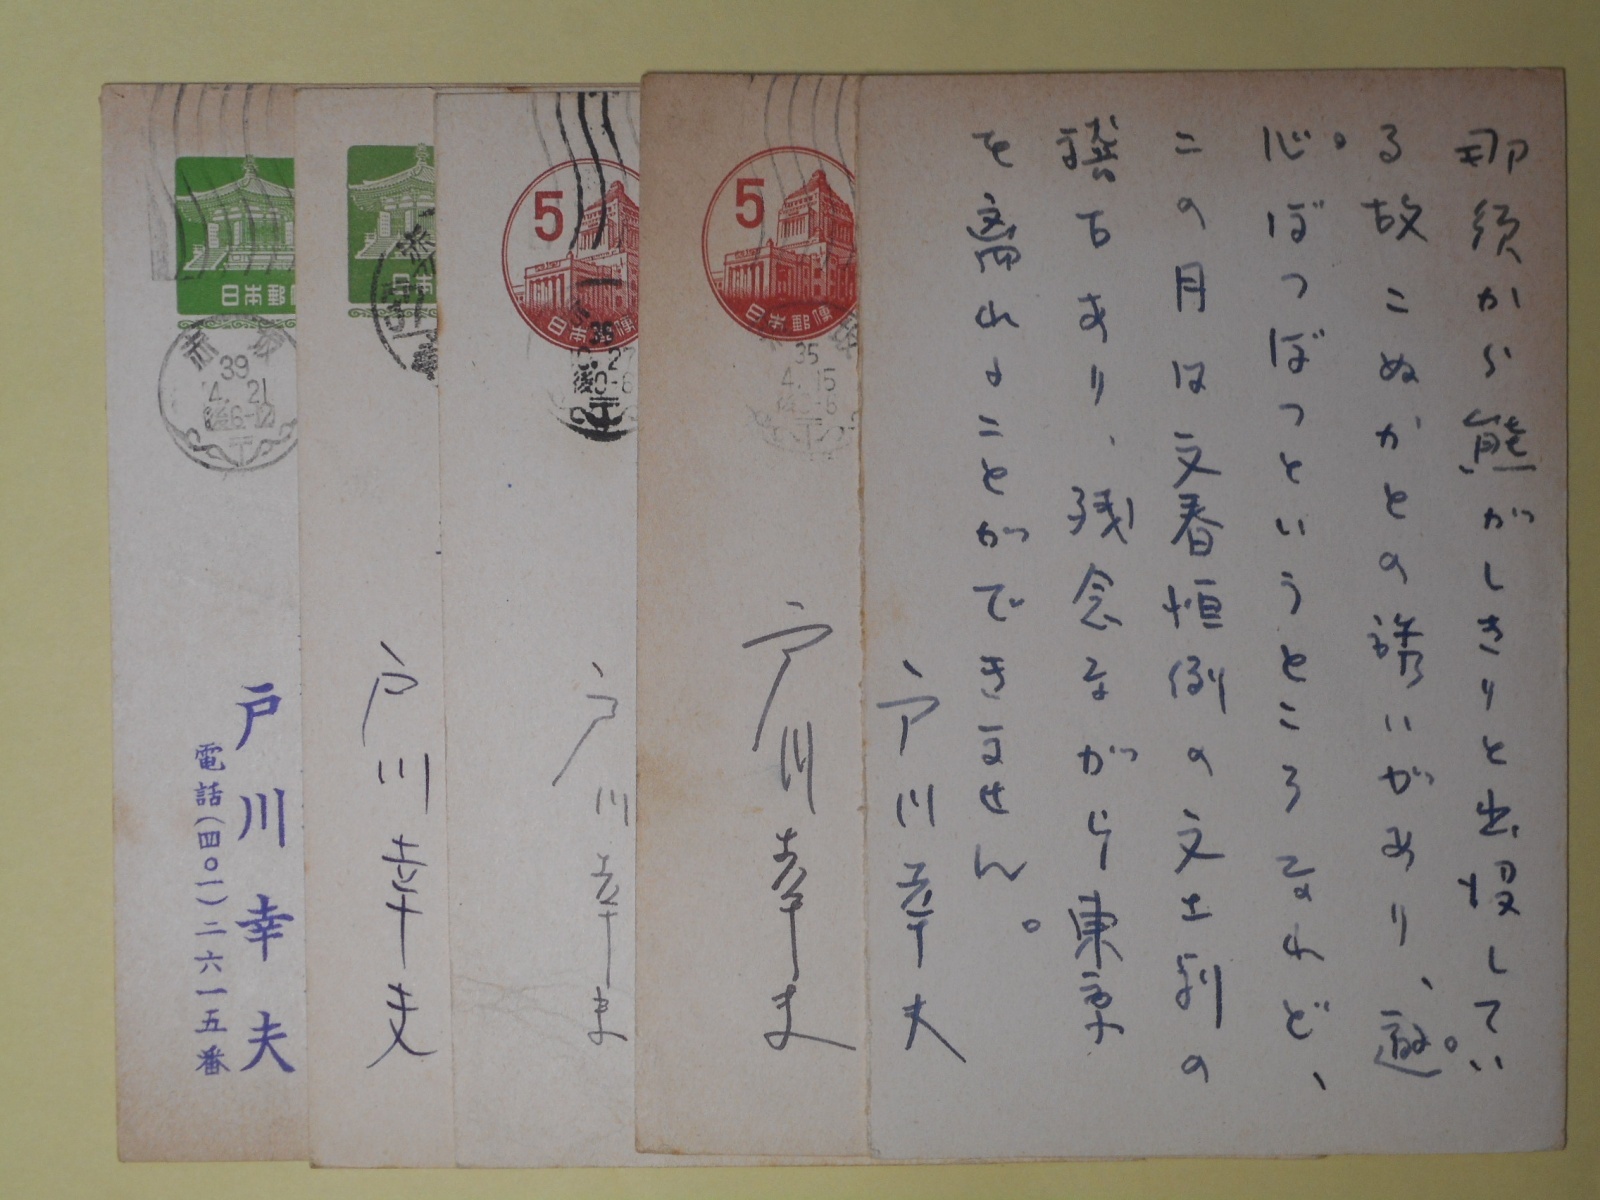 那須から熊がしきりと出没してい
る故こぬかとの誘いがあり、遊
心ぼつぼつというところなれど、
この月は文春恒例の文士劇の
稽古あり、残念ながら東京
を離れることができません。
戸川幸夫
5
日本郵便
35
4.15
戸川幸夫
5
日本郵便
戸川幸夫
日本
赤
戸川幸夫
日本郵便
赤坂
39
4.21
後6-12
戸川幸夫
電話(四〇一)二六一五番